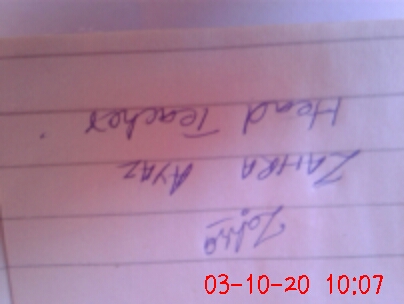 Zahra
ZAHRA AYAZ
Head Teacher
03-10-20 10:07